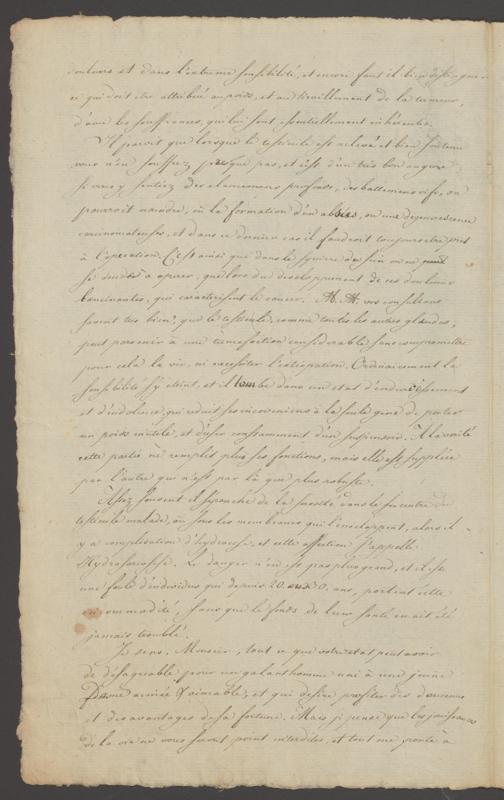 douleurs et dans l'extreme sensibilité, et encore faut il bien distinguer
ce qui doit etre attribué au poids, et au tiraillement de la tumeur,
d'avec les souffrances, qui lui sont essentiellement inhérentes.
Il paroit que lorsque le testicule est relevé et bien soutenu
vous n'en souffrez presque pas, et c'est d'un très bon augure
si vous y sentiez des elancemens profonds, des battemens vifs, on
pourroit craindre, où la formation d'un abcès, ou une degenerescence
carcinomateuse, et dans ce dernier cas il faudroit toujours etre pret
à l'operation. C'est ainsi que dans le squirre du sein on ne
se decide à operer, que lors du developpement de ces douleurs
lancinantes, qui caracterisent le cancer. M. M. vos conseillers
savent très bien, que le testicule, comme toutes les autres glandes,
peut parvenir à une tumefaction considerable sans compromettre
pour cela la vie, ni necessiter l'extirpation. Ordinairement la
sensibilité s'y eteint, et il tombe dans un etat d'endurcissement
et d'indolence, qui reduit ses inconveniens à la seule gene de porter
un poids inutile, et d'user constamment d'un suspensoir. A la verité
cette partie ne remplit plus ses fonctions, mais elle est supplée
par l'autre qui n'est par là que plus robuste.
Assez souvent il s'épanche de la serosité dans le centre du
testicule malade, où sous les membranes qui l'enveloppent, alors il
y a complication d'hydrocele, et cette affection s'appelle
Hydrosarcocele. Le danger n'en est pas plus grand, et il est
une foule d'individus qui depuis 20. ou 30. ans, portent cette
incommodité, sans que le fonds de leur santé en ait été
jamais troublé.
Je sens, Monsieur, tout ce que votre etat peut avoir
de désagreable pour un galant homme uni à une jeune
Dame aimée & aimable, et qui desire profiter des douceurs
et des avantages de sa fortune. Mais je pense que les jouissances
de la vie ne vous seront point interdites, et tout me porte à